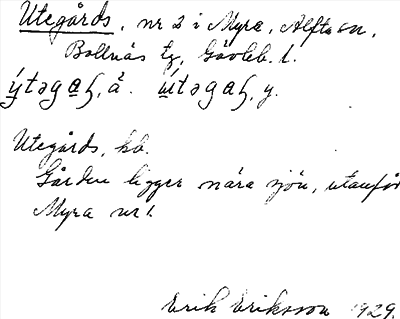 Utegårds, nr 2 i Myra, Alfta sn,
Bollnäs tg, Gävleb. l.
Utegårds, hb.
Gården ligger nära sjön, utanför
Myra nr 1.
Erik Eriksson 1929.